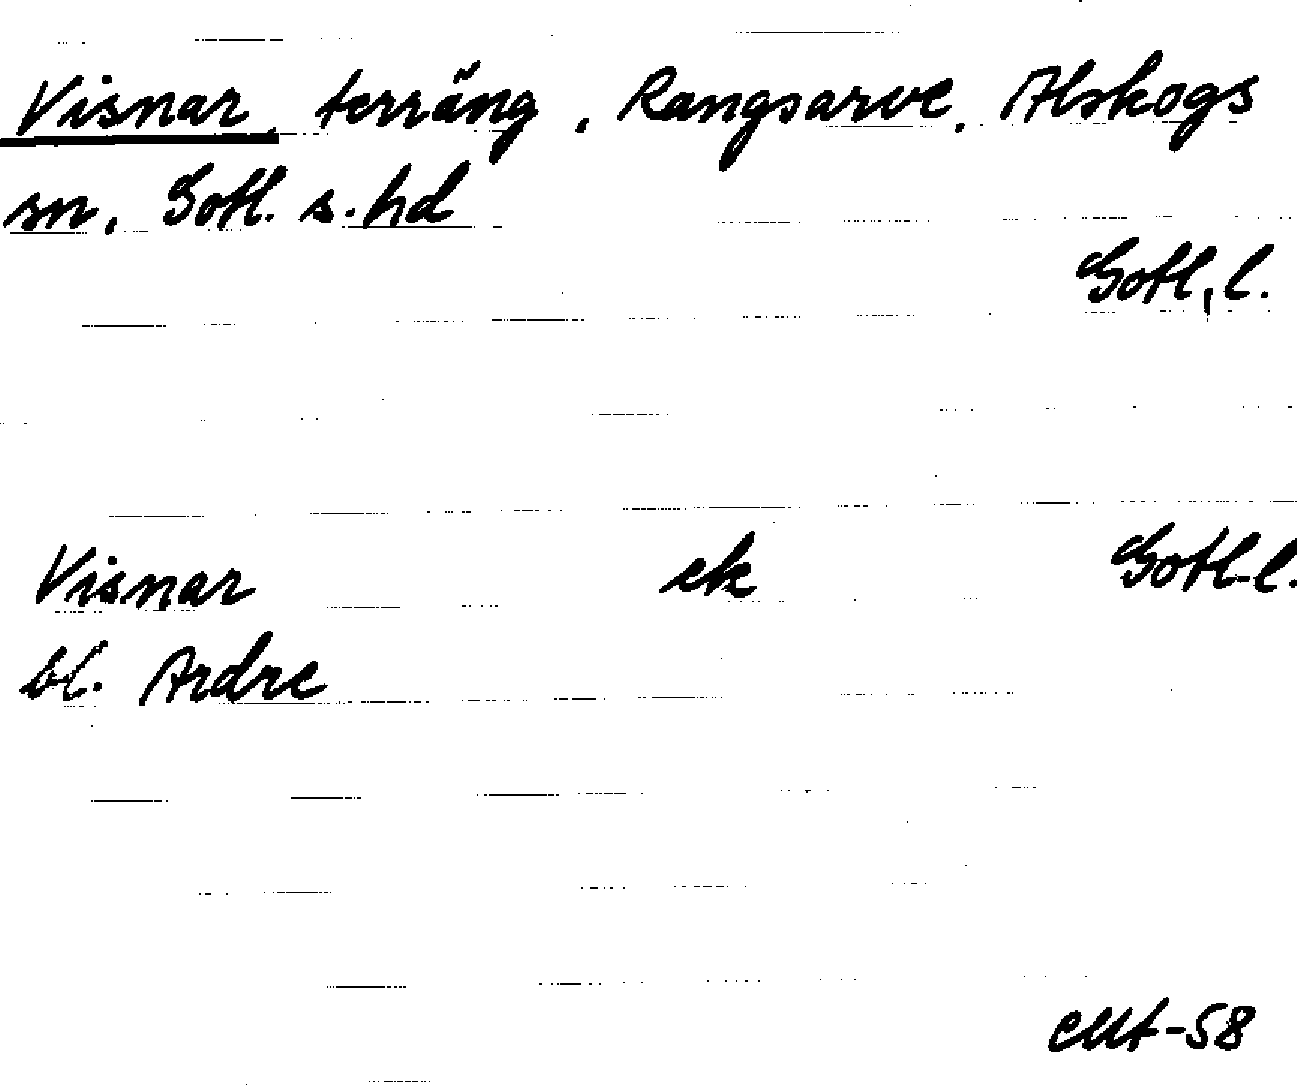 Visnar, terräng, Rangsarve, Alskogs
sn, Gotl. s. hd
Gotl, l.
Visnar ek Gotl-l.
bl. Ardre
CMt-58